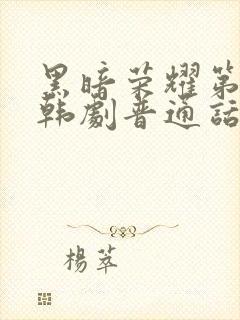 黑暗荣耀第
韩剧普通话
楊萃